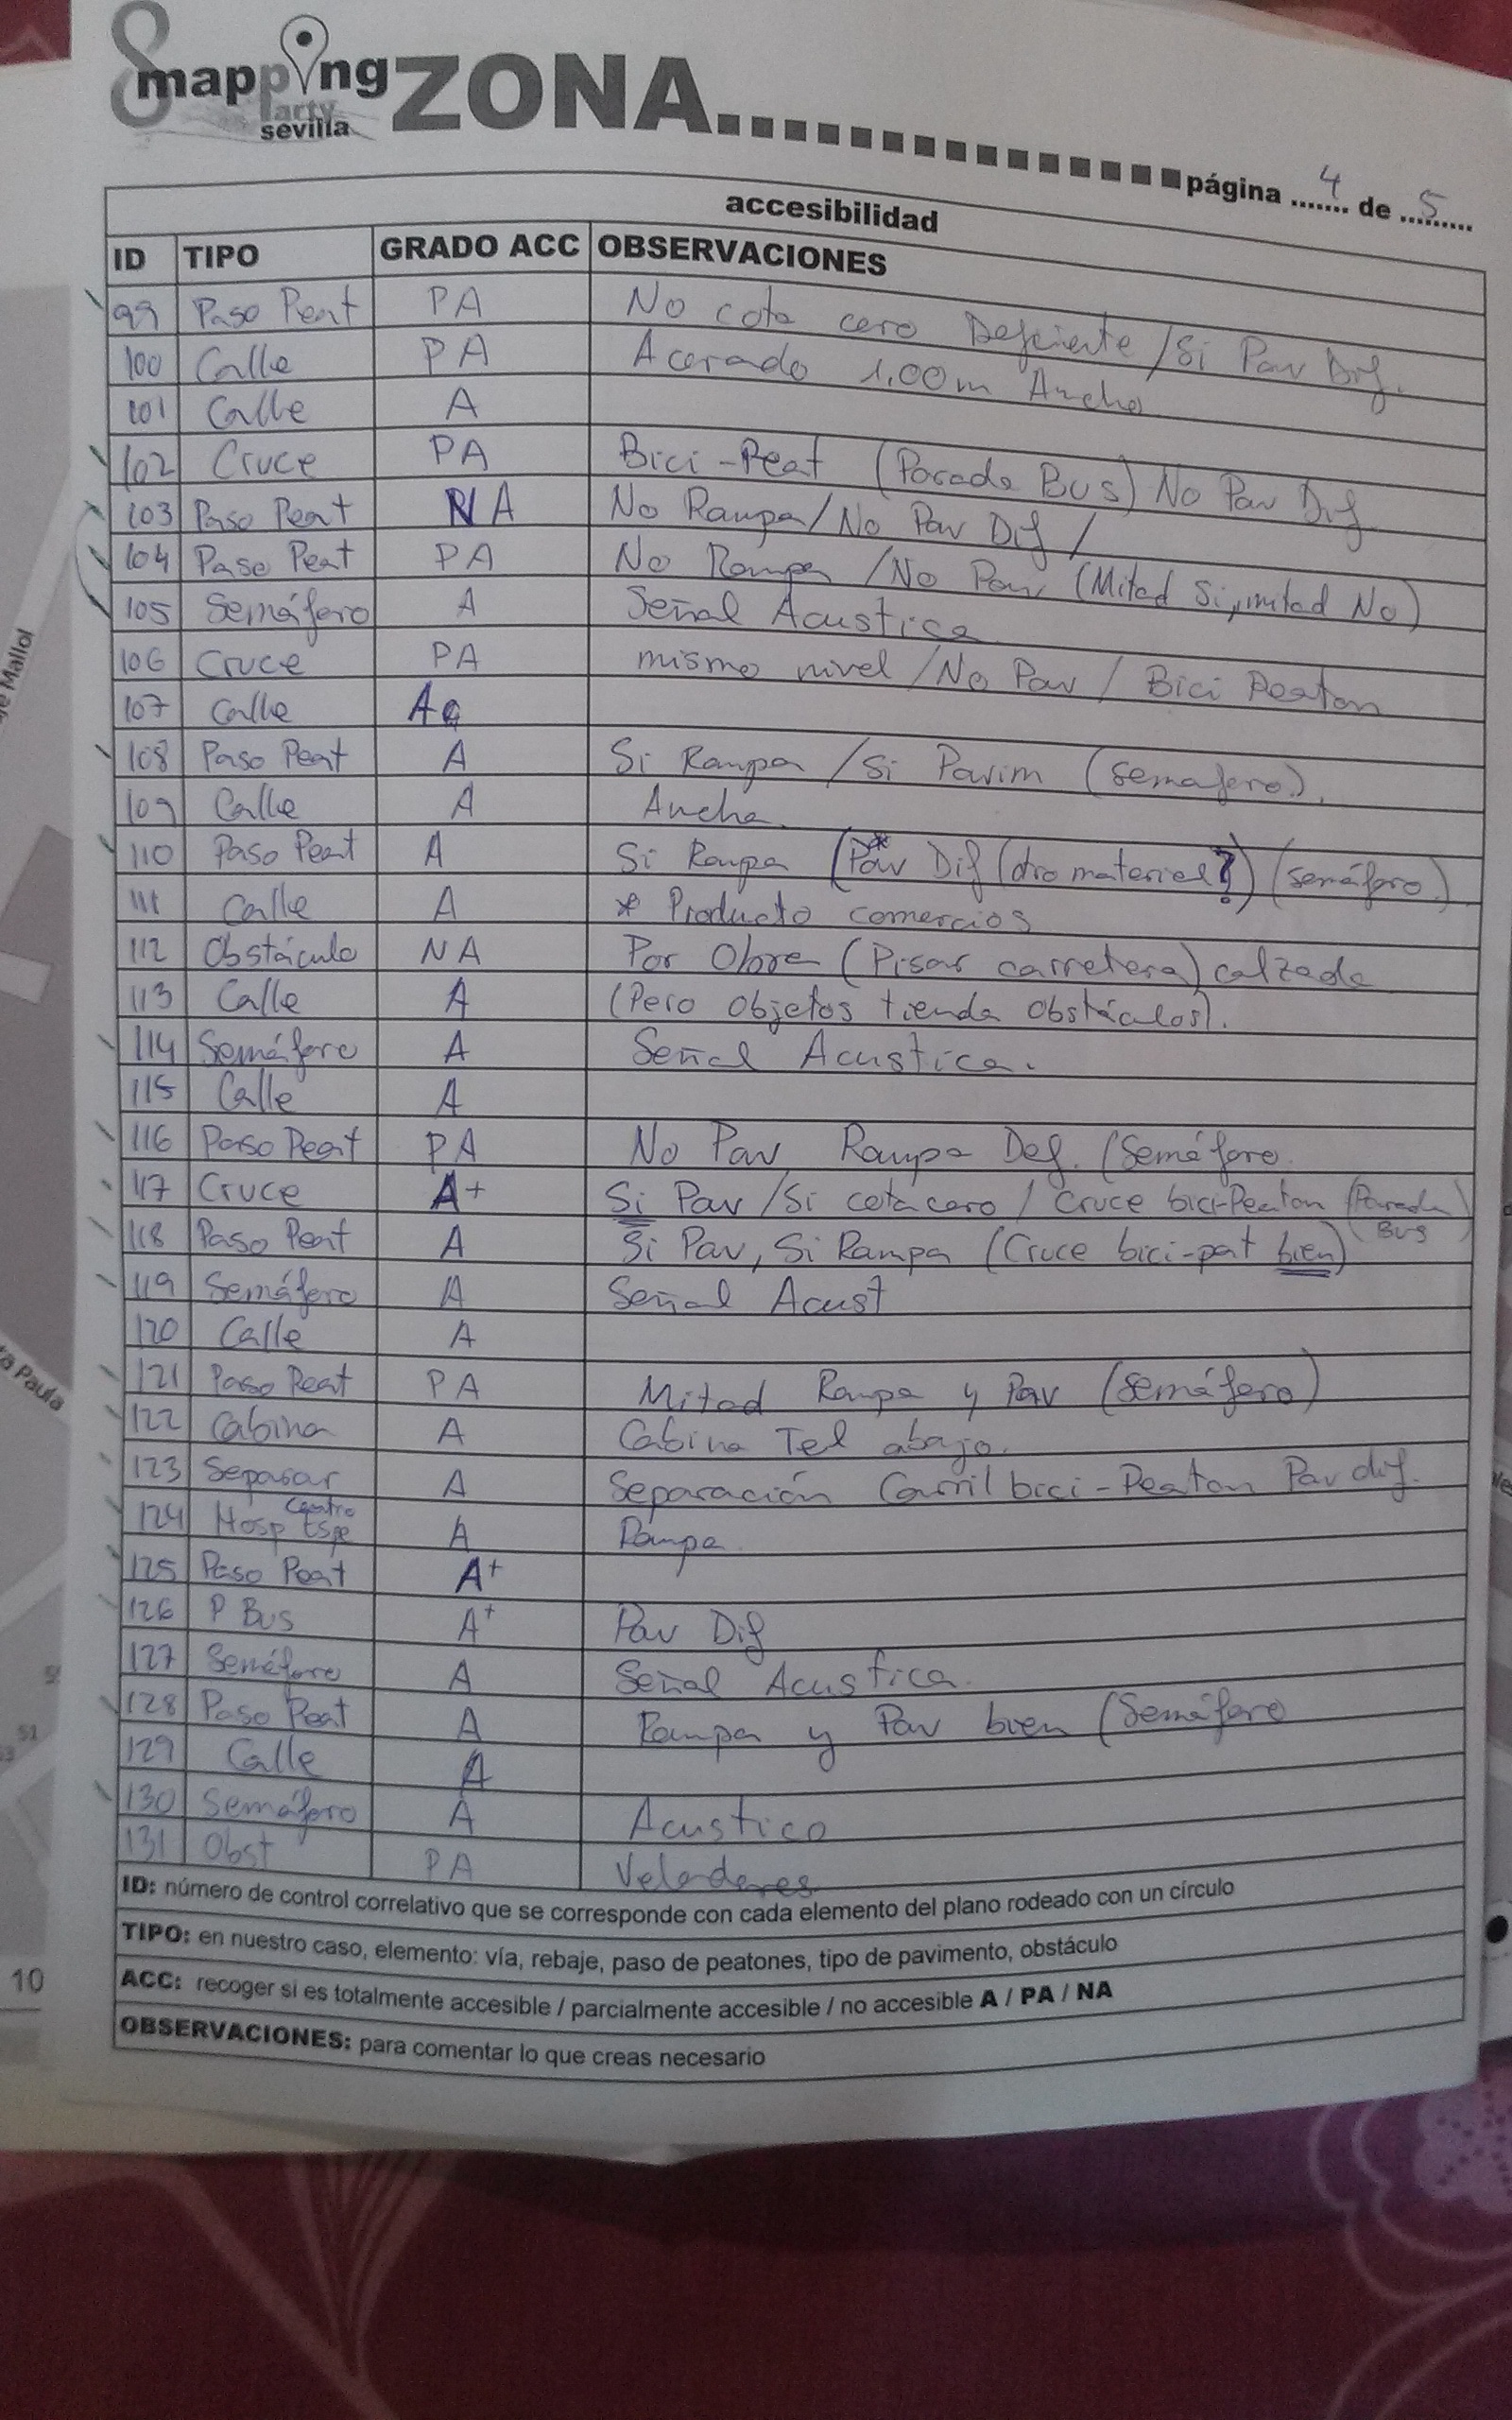 mapping ZONA
party
sevilla
página 4 de 5
accesibilidad
ID TIPO GRADO ACC OBSERVACIONES
99 Paso Peat PA No cota cero Deficiente / Si Pav Dif.
100 Calle PA Acerado 1,00m Ancho
101 Calle A
102 Cruce PA Bici-Peat (Parada Bus) No Pav Dif
103 Paso Peat NA No Rampa / No Pav Dif /
104 Paso Peat PA No Rampa / No Pav (Mitad Si, mitad No)
105 Semáforo A Señal Acustica
106 Cruce PA mismo nivel / No Pav / Bici Peaton
107 Calle A
108 Paso Peat A Si Rampa / Si Pavim (semaforo).
109 Calle A Ancha.
110 Paso Peat A Si Rampa (Pav* Dif (otro material?) (semáforo)
111 Calle A * Producto comercios
112 Obstáculo NA Por Obra (Pisar carretera) calzada
113 Calle A (Pero objetos tienda obstáculos).
114 Semáforo A Señal Acustica.
115 Calle A
116 Paso Peat PA No Pav Rampa Def. (Semáforo
117 Cruce A+ Si Pav / Si cota cero / Cruce bici-Peaton (Parada Bus)
118 Paso Peat A Si Pav, Si Rampa (Cruce bici-pat bien)
119 Semáforo A Señal Acust
120 Calle A
121 Paso Peat PA Mitad Rampa y Pav (semáforo)
122 Cabina A Cabina Tel abajo.
123 Separar A Separación Carril bici-Peaton Pav dif.
124 Hosp Centro Espe A Rampa
125 Paso Peat A+
126 P Bus A+ Pav Dif
127 Semáforo A Señal Acustica.
128 Paso Peat A Rampa y Pav bien (Semáforo
129 Calle A
130 Semáforo A Acustico
131 Obst PA Veladores
ID: número de control correlativo que se corresponde con cada elemento del plano rodeado con un círculo
TIPO: en nuestro caso, elemento: vía, rebaje, paso de peatones, tipo de pavimento, obstáculo
ACC: recoger si es totalmente accesible / parcialmente accesible / no accesible A / PA / NA
OBSERVACIONES: para comentar lo que creas necesario
Mallol
Paula
51
10